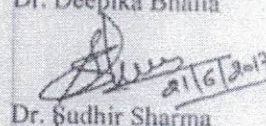 Dr. Deepika Bhalla
21/6/2017
Dr. Sudhir Sharma